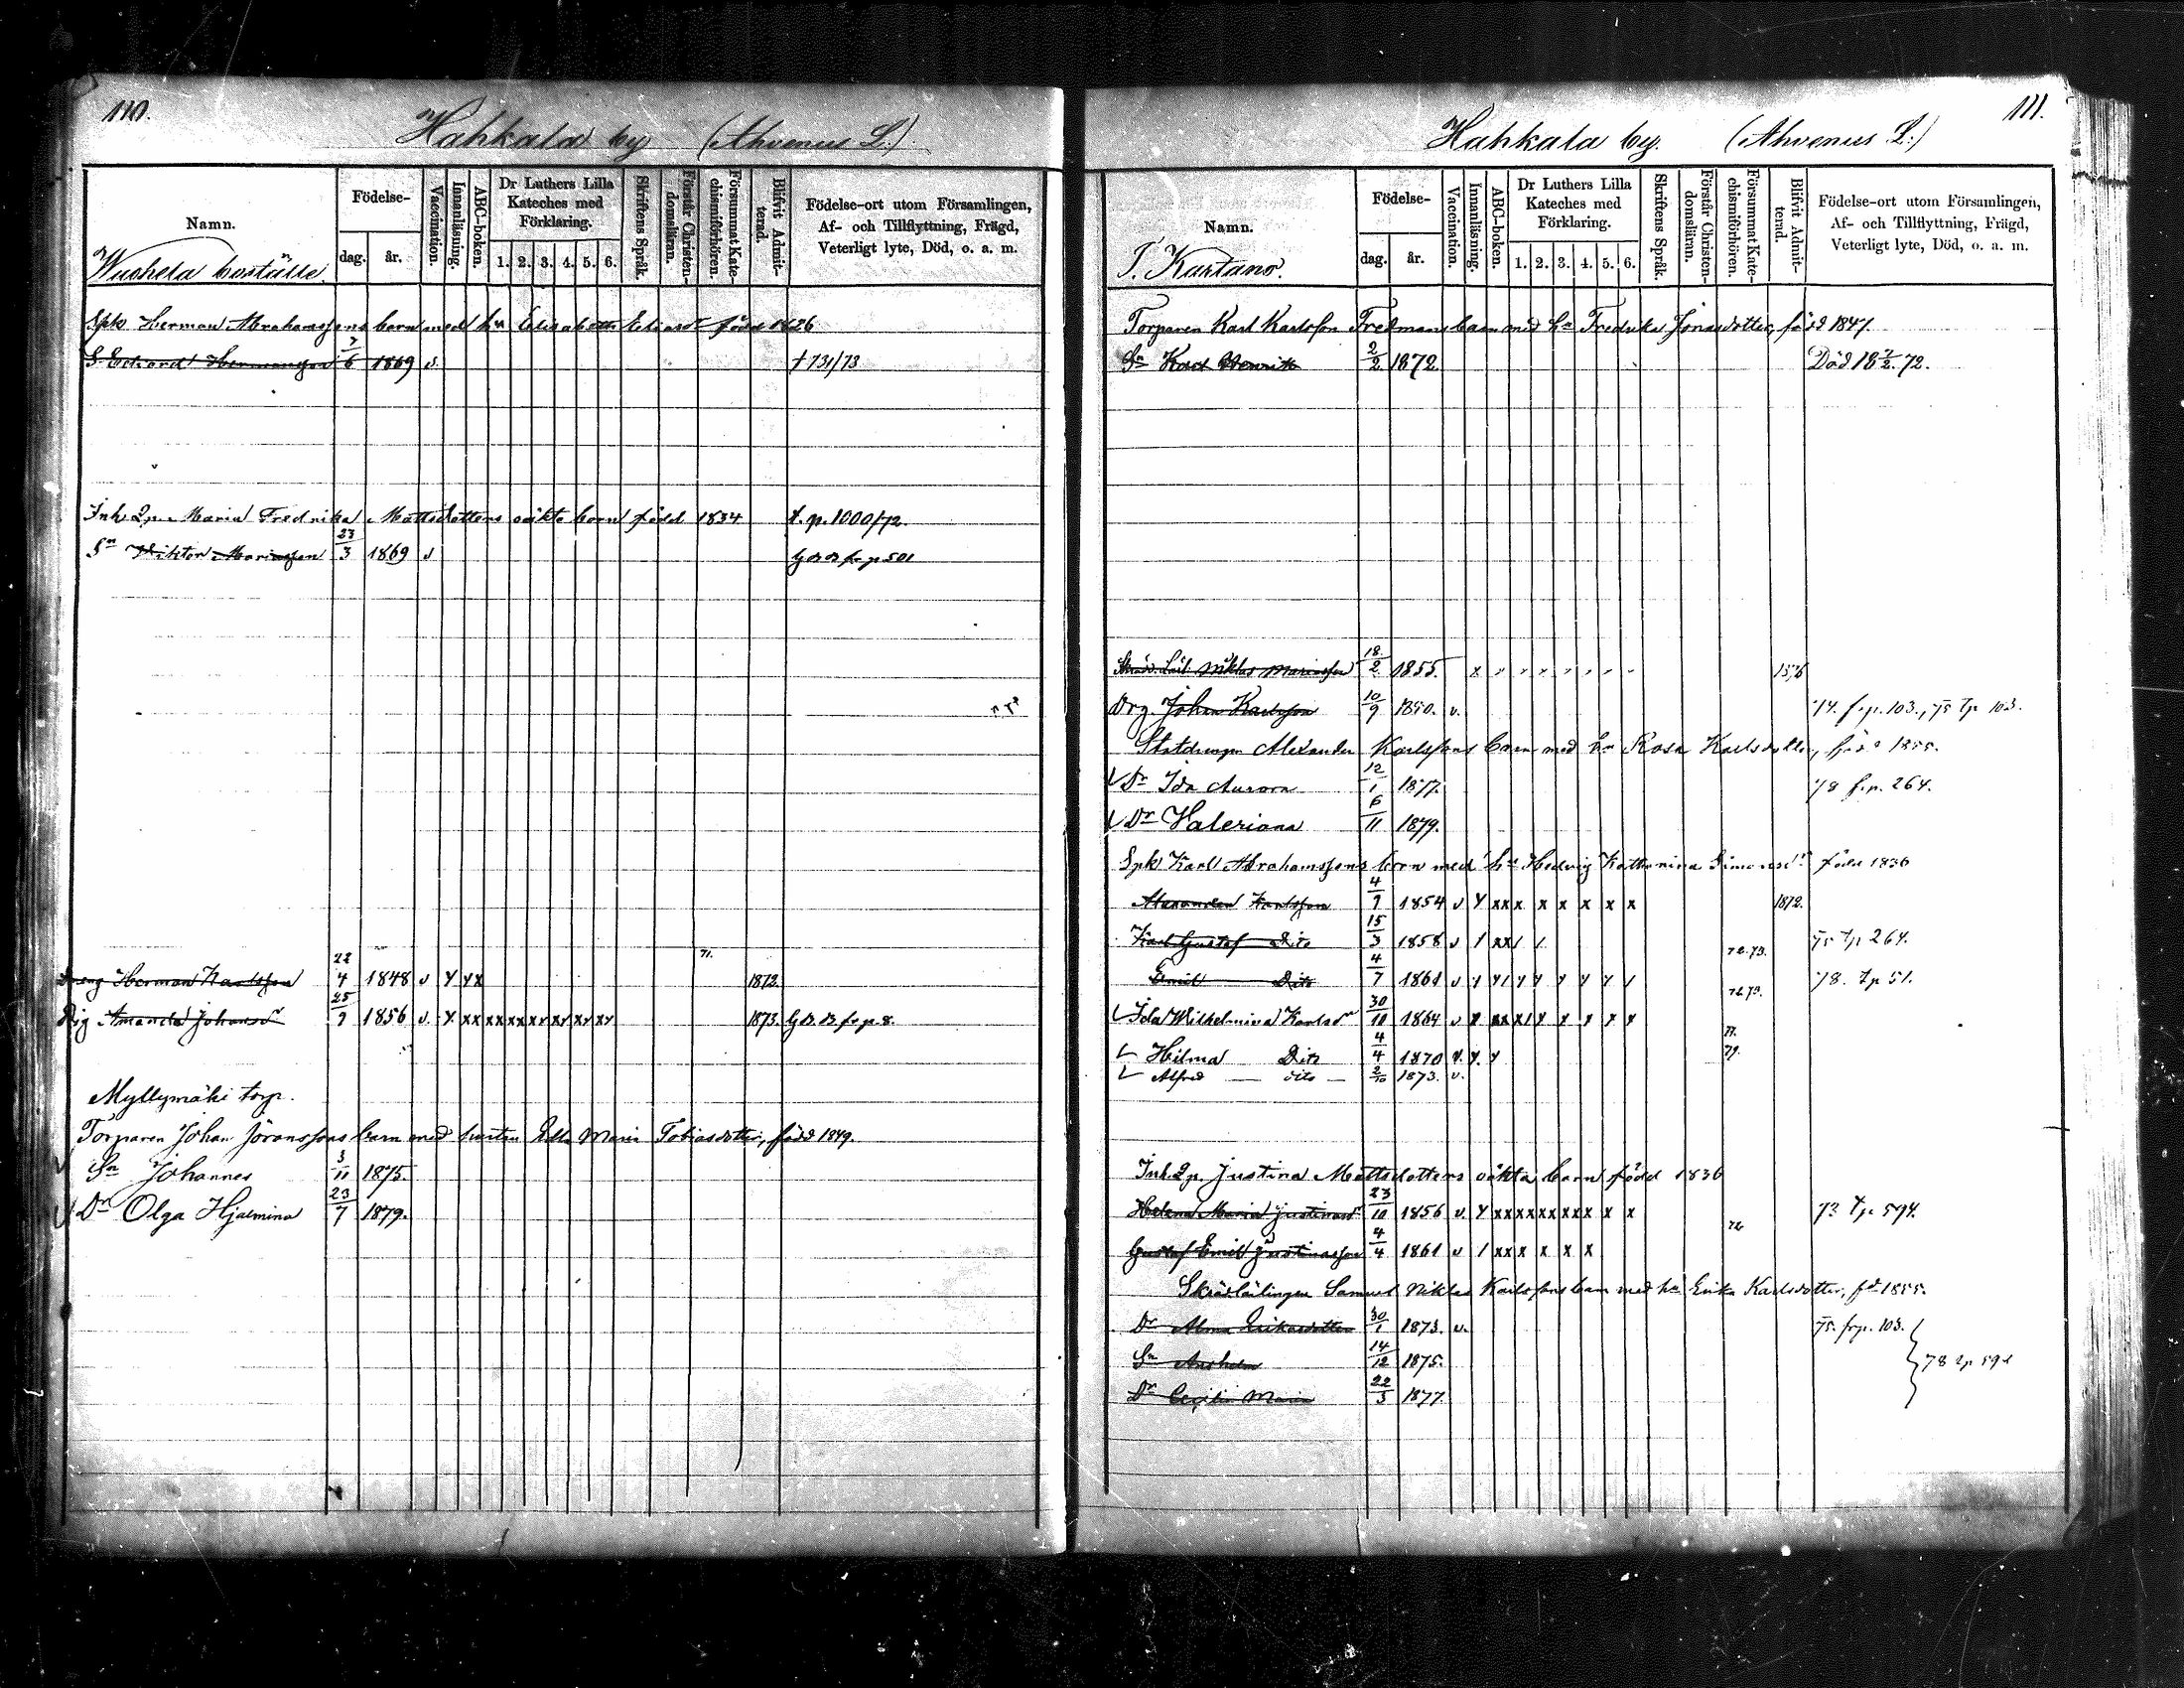 110.
Hahkala by (Ahvenus L.)
Namn.
Födelse-
dag. år.
Vaccination.
Innanläsning.
ABC-boken.
Dr Luthers Lilla Kateches med Förklaring.
1. 2. 3. 4. 5. 6.
Skriftens Språk.
Förstår Christendomslärn.
Försummat Katechismiförhören.
Blifvit Admitterad.
Födelse-ort utom Församlingen, Af- och Tillflyttning, Frägd, Veterligt lyte, Död, o. a. m.
Wuohela boställe.
Spk Herman Abrahamssons barn med hu Elisabeth Eliasdr född 1826
S. Edvard Hermansson 7/6 1869 v. † 731/73
Inh. Qp. Maria Fredrika Mattsdotters oäkta barn född 1834 t. p. 1000/72.
Sn Viktor Mariasson 23/3 1869 v
Dreng Herman Karlsson 22/4 1848 v y yx 71. 1872
Pig Amanda Johansdr 25/9 1856 v. y xx xx xx xy xy xy xy 1873.
Myllymäki torp.
Torparen Johan Göranssons barn med hustru Edla Maria Tobiasdotter, född 1849.
Sn Johannes 3/11 1875.
Dr Olga Hjalmina 23/7 1879.
111.
Hahkala by. (Ahvenus L.)
Namn.
Födelse-
dag. år.
Vaccination.
Innanläsning.
ABC-boken.
Dr Luthers Lilla Kateches med Förklaring.
1. 2. 3. 4. 5. 6.
Skriftens Språk.
Förstår Christendomslärn.
Försummat Katechismiförhören.
Blifvit Admitterad.
Födelse-ort utom Församlingen, Af- och Tillflyttning, Frägd, Veterligt lyte, Död, o. a. m.
T. Kartano.
Torparen Karl Karlsson Fredmans barn med hu Fredrika Jonasdotter, född 1847.
Sn Karl Henrik 2/2 1872 Död 18 7/2 72.
Niklas Mariasson 18/2 1855.
Drg. Johan Karlsson 10/9 1850. v. 74. fr p. 103., 75 tp 103.
Statdrengen Alexander Karlssons barn med hu Rosa Karlsdotter, född 1855.
Dr Ida Aurora 12/1 1877. 78 fr p. 264.
Dr Valeriana 6/11 1879.
Spk Karl Abrahamssons barn med hu Hedvig Katharina Simonsdr född 1836
Alexander Karlsson 4/7 1854 v y xx x x x x x x 1872.
Karl Gustaf Dito 15/3 1858 v / xx / / 72.73. 75 tp 264.
Emil Dito 4/7 1861 v y y/ y y y y y / 72.73. 78. tp 51.
Ida Wilhelmina Karlsdr 30/10 1864 v x xx x/ x x x x x
Hilma Dito 4/4 1870 v. y. y 77. 79.
Alfred dito 2/10 1873. v.
Inh. Qp. Justina Mattsdotters oäkta barn född 1836
Helena Maria Justinasdr 23/10 1856 v. y xx xx xx xx x x x 73 tp. 594.
Gustaf Emil Justinasson 4/4 1861 v / xx x x x x 72.
Skräd.lärlingen Samuel Niklas Karlssons barn med hu Erika Karlsdotter, fd 1855.
Dr Alma Erikasdotter 30/1 1873. v. 75. fr p. 103.
Sn Anshelm 14/12 1875.
Dr Cecilia Maria 22/3 1877.